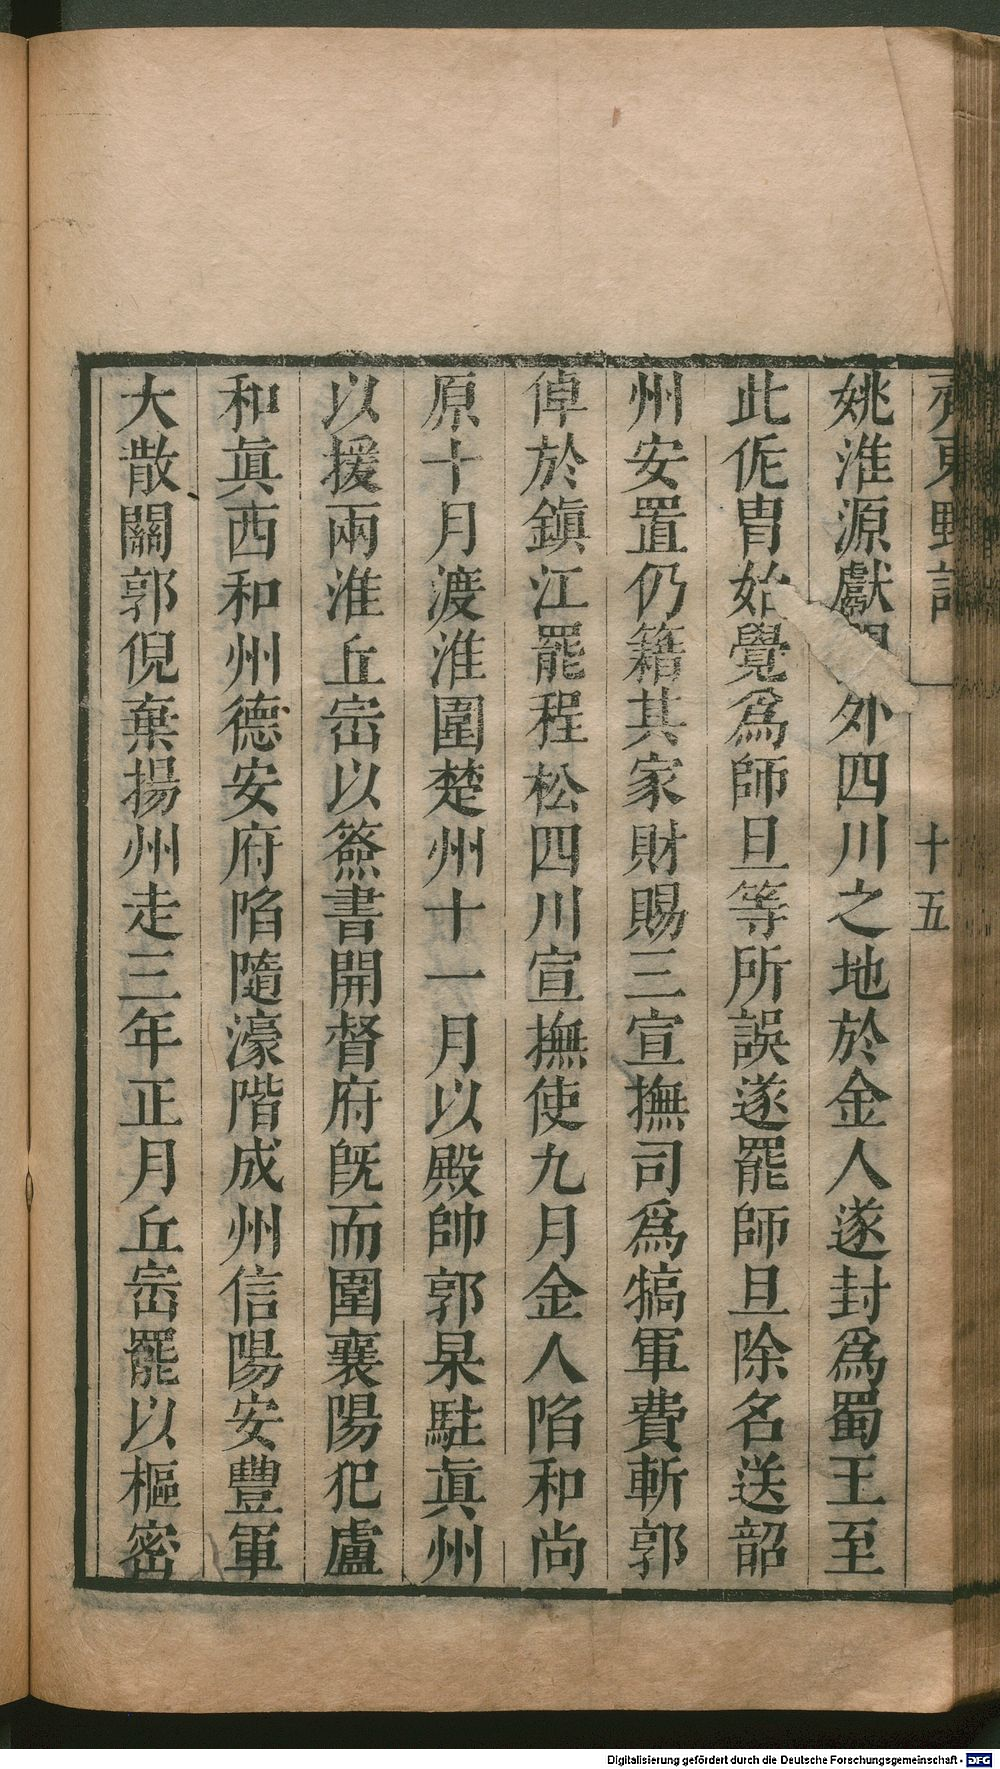 齊東野語
十五
姚淮源獻 外四川之地於金人遂封爲蜀王至
此侂冑始覺爲師旦等所誤遂罷師旦除名送韶
州安置仍籍其家財賜三宣撫司爲犒軍費斬郭
倬於鎭江罷程松四川宣撫使九月金人陷和尚
原十月渡淮圍楚州十一月以殿帥郭杲駐眞州
以援兩淮丘崈以簽書開督府旣而圍襄陽犯廬
和眞西和州德安府陷隨濠階成州信陽安豐軍
大散關郭倪棄揚州走三年正月丘崈罷以樞密
Digitalisierung gefördert durch die Deutsche Forschungsgemeinschaft - DFG